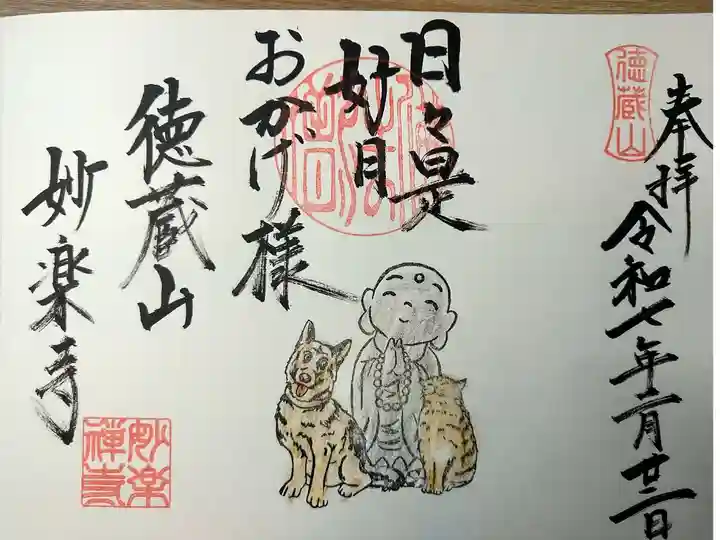 奉拝
徳蔵山
令和七年二月廿二日
日々是
好日
おかげ様
徳蔵山
妙楽寺
妙楽
禅寺